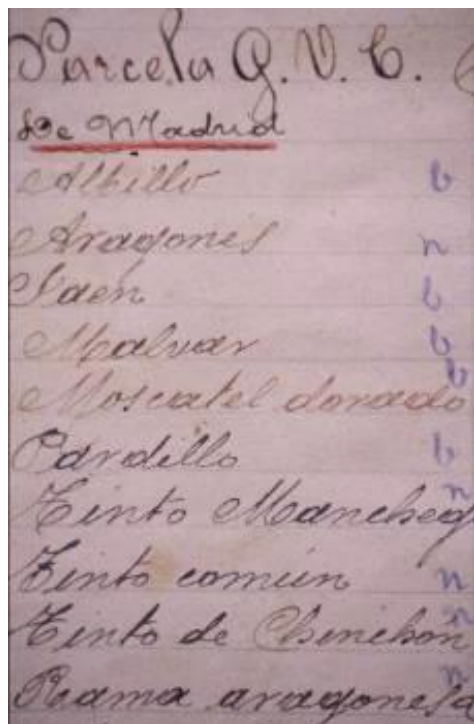 Parcela G.V.C.
De Madrid
Albillo b
Aragonés n
Jaén b
Malvar b
Moscatel dorado b
Pardillo b
Tinto Mancheg n
Tinto común n
Tinto de Chinchón n
Rama aragonesa n